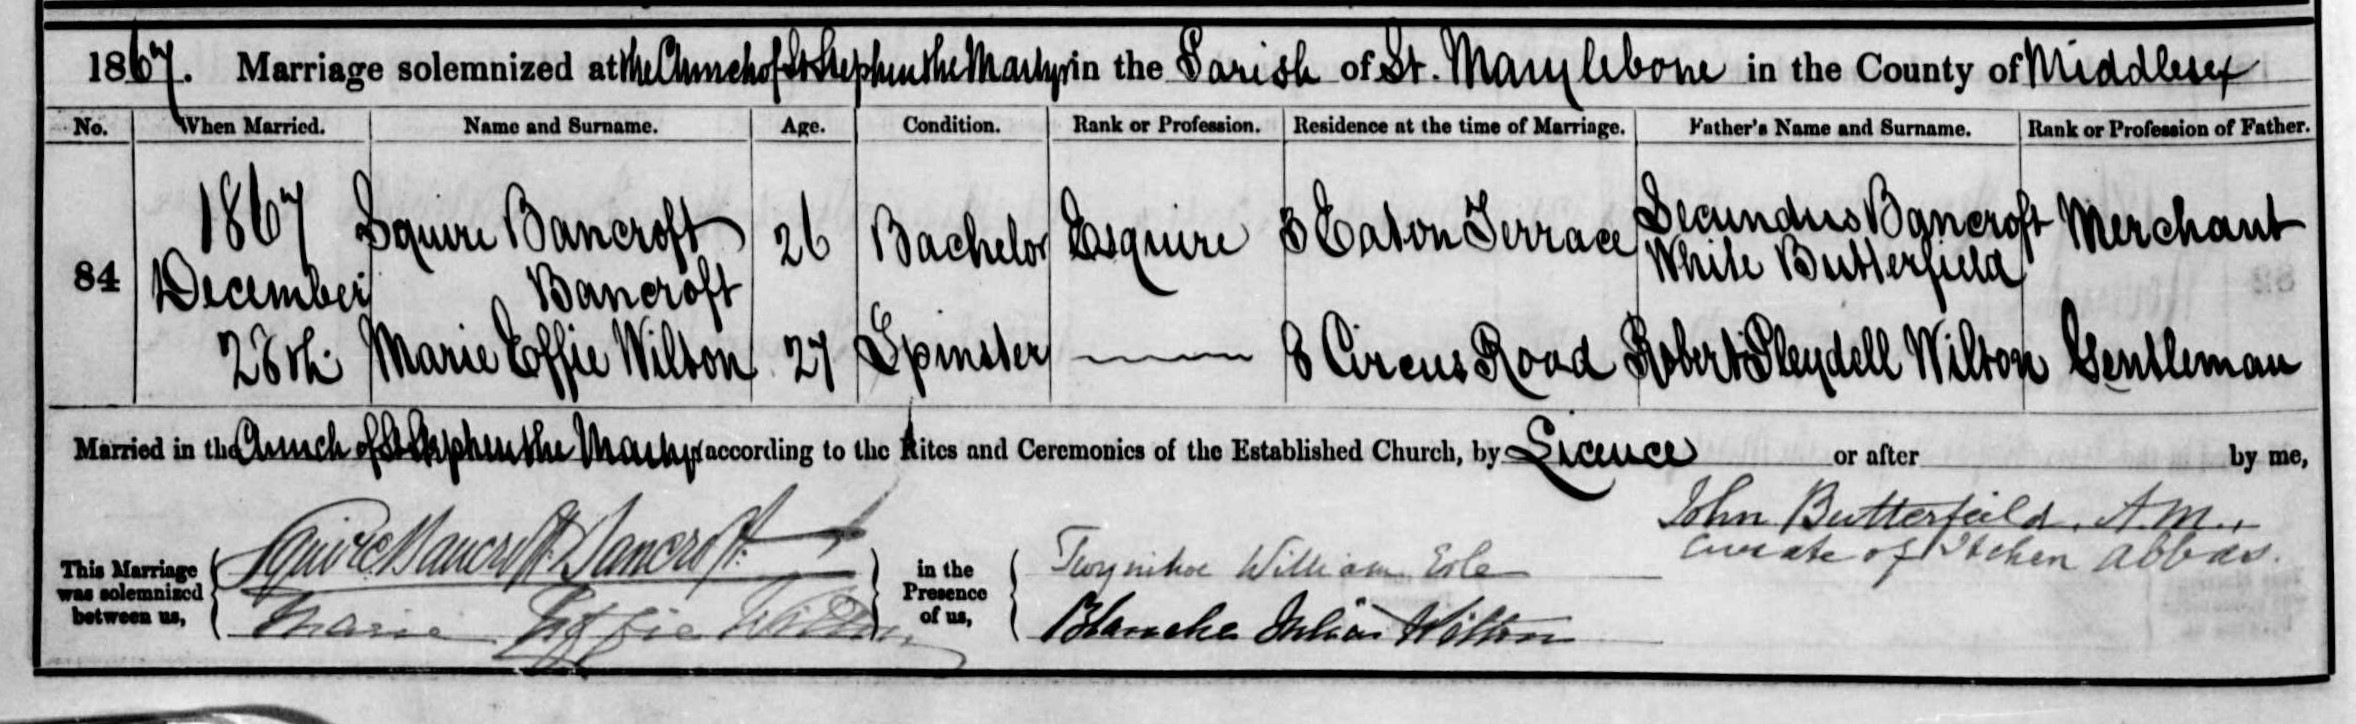 1867. Marriage solemnized at the Church of St Stephen the Martyr in the Parish of St. Marylebone in the County of Middlesex
No. When Married. Name and Surname. Age. Condition. Rank or Profession. Residence at the time of Marriage. Father's Name and Surname. Rank or Profession of Father.
84 1867 December 28th
Squire Bancroft Bancroft 26 Bachelor Esquire 3 Eaton Terrace Secundus Bancroft White Butterfield Merchant
Marie Effie Wilton 27 Spinster 8 Circus Road Robert Pleydell Wilton Gentleman
Married in the Church of St Stephen the Martyr according to the Rites and Ceremonies of the Established Church, by Licence or after by me,
John Butterfield, A.M.,
Curate of Itchen Abbas.
This Marriage was solemnized between us, Squire Bancroft Bancroft. Marie Effie Wilton
in the Presence of us, Twynihoe William Erle Blanche Julia Wilton